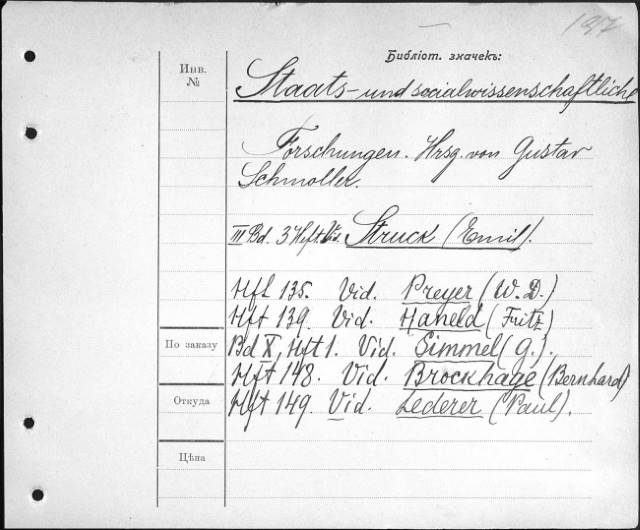 197
Библіот. значекъ:
Инв.
№
Staats- und socialwissenschaftliche
Forschungen. Hrsg. von Gustav
Schmoller.
III Bd. 3 Heft. Struck (Emil).
Hft 135. Vid. Preyer (W. D.)
Hft 139. Vid. Haneld (Fritz)
По заказу
Bd X, Hft 1. Vid. Simmel (G.).
Hft 148. Vid. Brockhage (Bernhard)
Откуда
Hft 149. Vid. Lederer (Paul).
Цѣна